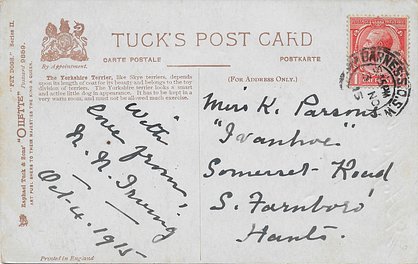 TUCK'S POST CARD
By Appointment.
CARTE POSTALE
POSTKARTE
The Yorkshire Terrier, like Skye terriers, depends
upon its length of coat for its beauty and belongs to the toy
division of terriers. The Yorkshire terrier looks a smart
and active little dog in appearance. It has to be kept in a
very warm room, and must not be allowed much exercise.
(FOR ADDRESS ONLY.)
With
love from,
Oct 4. 1915
Miss K. Parsons
"Ivanhoe"
Somerset-Road
S. Farnboro'
Hants.
BARNES S.W.
Printed in England
Raphael Tuck & Sons' "OILETTE"
ART PUBLISHERS TO THEIR MAJESTIES THE KING & QUEEN.
Series II.